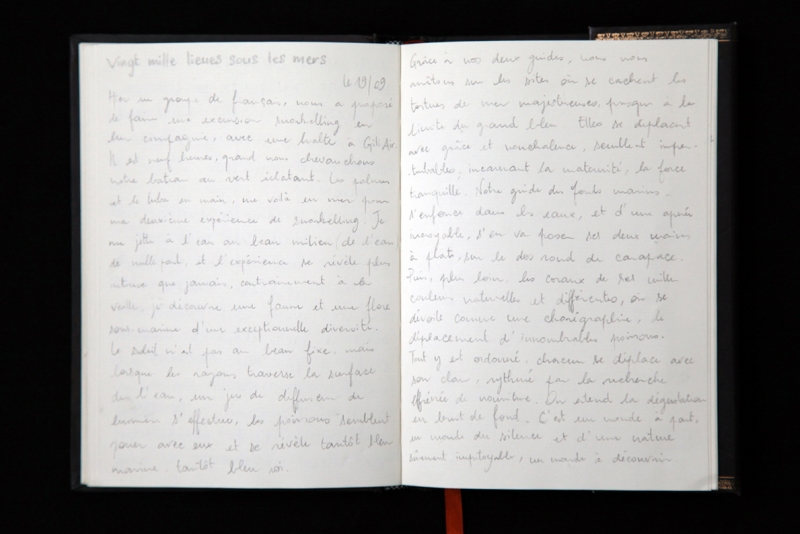 Vingt mille lieues sous les mers
le 19/09
Hier un groupe de français, nous a proposé
de faire une excursion snorkelling en
leur compagnie, avec une halte à Gili Air.
Il est neuf heures, quand nous chevauchons
notre bateau en vert éclatant. Les palmes
et le tuba en main, me voilà en mer pour
ma deuxième expérience de snorkelling. Je
me jette à l'eau au beau milieu de l'eau
de nulle part, et l'expérience se révèle plus
intense que jamais, contrairement à la
veille, je découvre une faune et une flore
sous-marine d'une exceptionnelle diversité.
Le soleil n'est pas au beau fixe, mais
lorsque les rayons traverse la surface
de l'eau, un jeu de diffusion de
lumière s'effectue, les poissons semblent
jouer avec eux et se révèle tantôt bleu
marine, tantôt bleu
Grâce à nos deux guides, nous nous
sur les sites où se cachent les
tortues de mer majestueuses, presque à la
limite du grand bleu. Elles se déplacent
avec grâce et nonchalance, semblent imper-
turbables, incarnant la maternité, la force
tranquille. Notre guide des fonds marins,
s'enfonce dans les eaux, et d'une apnée
incroyable, s'en va poser ses deux mains
à plats, sur le dos rond du carapace.
Puis, plus loin, les coraux de mille
couleurs naturelles et différentes, où se
dévoile comme une chorégraphie, le
déplacement d'innombrables poissons.
Tout y est ordonné, chacun se déplace avec
son clan, rythmé par la recherche
effrénée de nourriture. On entend la dégustation
en bruit de fond. C'est un monde à part,
un monde du silence et d'une nature
impitoyable, un monde à découvrir